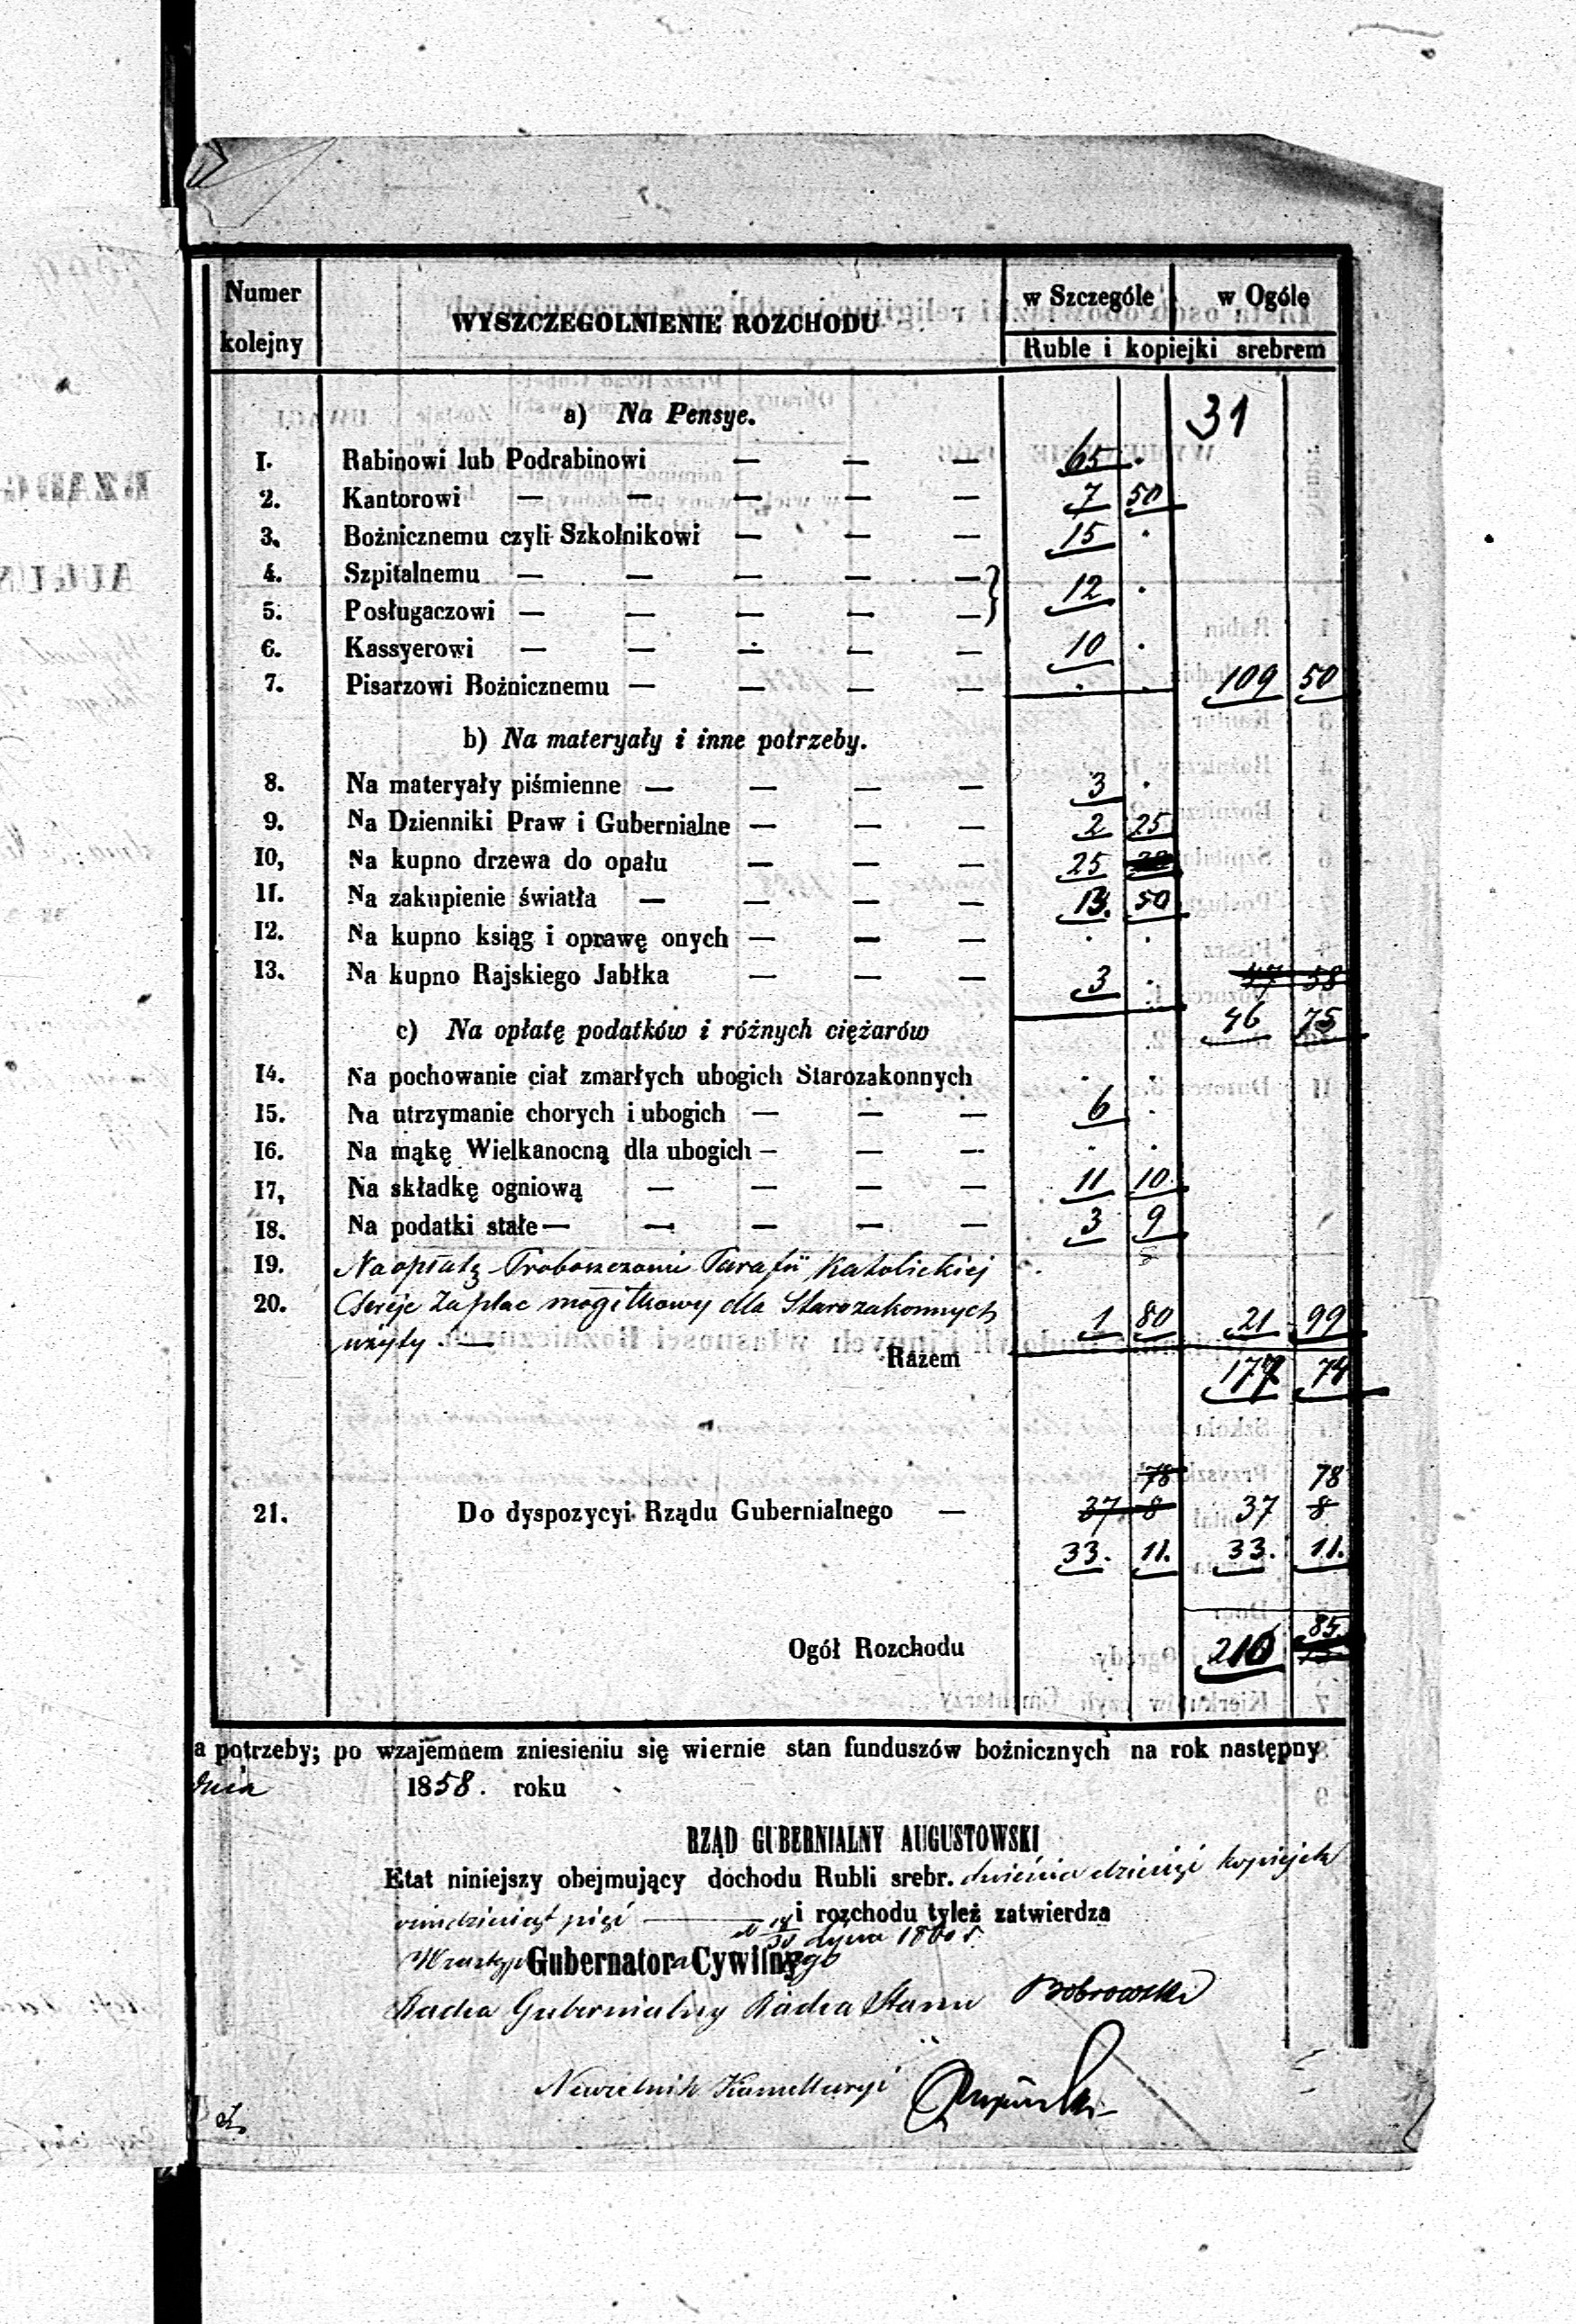 Numer kolejny
WYSZCZEGOLNIENIE ROZCHODU
w Szczególe w Ogóle
Ruble i kopiejki srebrem
31
a) Na Pensye.
1. Rabinowi lub Podrabinowi — — — 65 .
2. Kantorowi — — — — — 7 50
3. Bożnicznemu czyli Szkolnikowi — — — 15 .
4. Szpitalnemu — — — — — } 12 .
5. Posługaczowi — — — — —
6. Kassyerowi — — — — — 10 .
7. Pisarzowi Bożnicznemu — — — — . . 109 50
b) Na materyały i inne potrzeby.
8. Na materyały piśmienne — — — — 3 .
9. Na Dzienniki Praw i Gubernialne — — — 2 25
10, Na kupno drzewa do opału — — — 25
11. Na zakupienie światła — — — — 13. 50
12. Na kupno ksiąg i oprawę onych — — — . .
13. Na kupno Rajskiego Jabłka — — — 3 . 47 58
46 75
c) Na opłatę podatków i różnych ciężarów
14. Na pochowanie ciał zmarłych ubogich Starozakonnych . .
15. Na utrzymanie chorych i ubogich — — — 6 .
16. Na mąkę Wielkanocną dla ubogich — — — . .
17, Na składkę ogniową — — — — 11 10
18. Na podatki stałe — — — — — 3 9
19. Na opłatę Proboszczowi Parafii Katolickiej
20. za plac mogiłkowy dla Starozakonnych 1 80 21 99
użyty. —
Razem 177 74
78 78
21. Do dyspozycyi Rządu Gubernialnego — 37 8 37 8
33. 11. 33. 11.
85
Ogół Rozchodu 210
a potrzeby; po wzajemnem zniesieniu się wiernie stan funduszów bożnicznych na rok następny
dnia 1858. roku
RZĄD GUBERNIALNY AUGUSTOWSKI
Etat niniejszy obejmujący dochodu Rubli srebr. dwieście dziesięć kopiejek
ośmdziesiąt pięć — i rozchodu tyleż zatwierdza
1860 r.
Gubernatora Cywilnego
Radca Gubernialny Radca Stanu Bobrowski
Naczelnik Kancellaryi